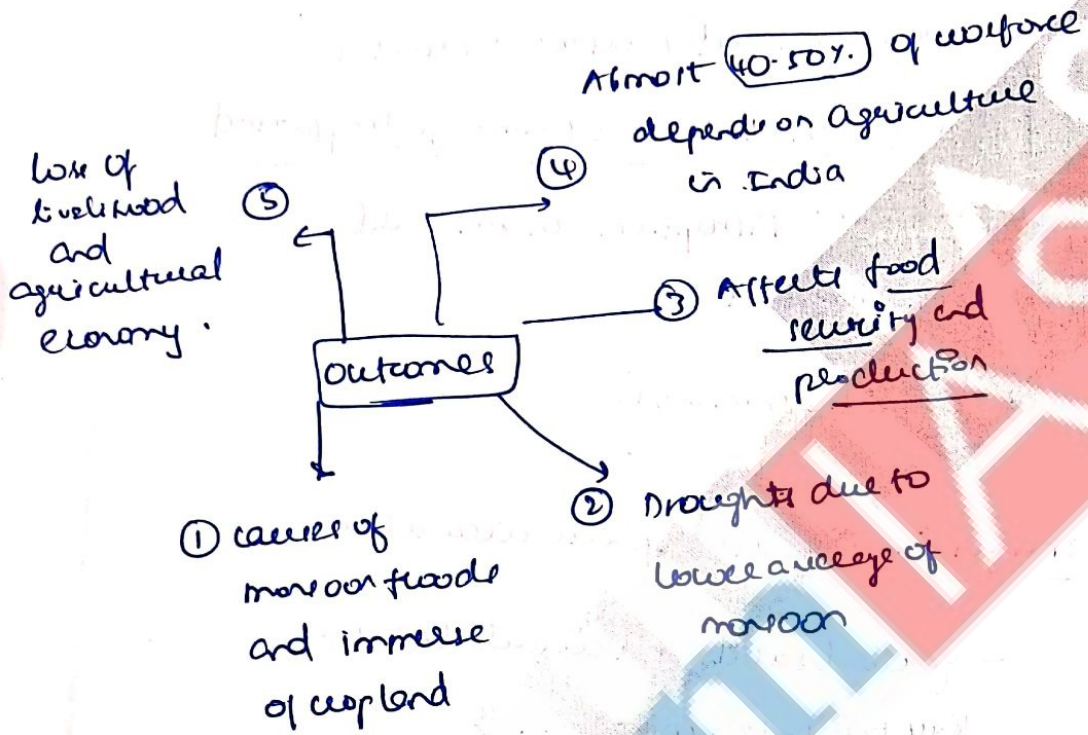 Almost 40-50% of workforce
depends on agriculture
in India
④
loss of
livelihood
and
agricultural
economy.
⑤
③ Affects food
security and
production
outcomes
① causes of
monsoon floods
and immerse
of cropland
② Droughts due to
lower average of
monsoon
IAS
m